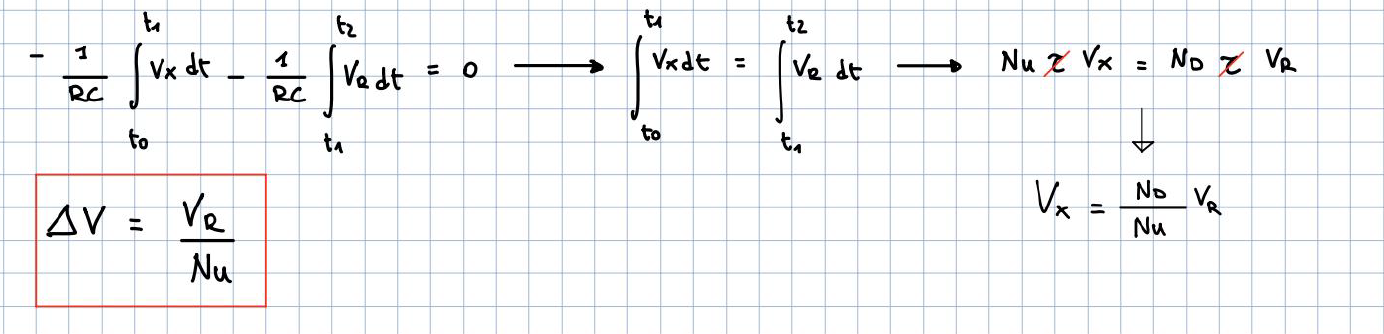 - 1/RC ∫t0^t1 Vx dt - 1/RC ∫t1^t2 VR dt = 0 ⟶ ∫t0^t1 Vx dt = ∫t1^t2 VR dt ⟶ Nu τ Vx = ND τ VR
↓
ΔV = VR/Nu
Vx = ND/Nu VR